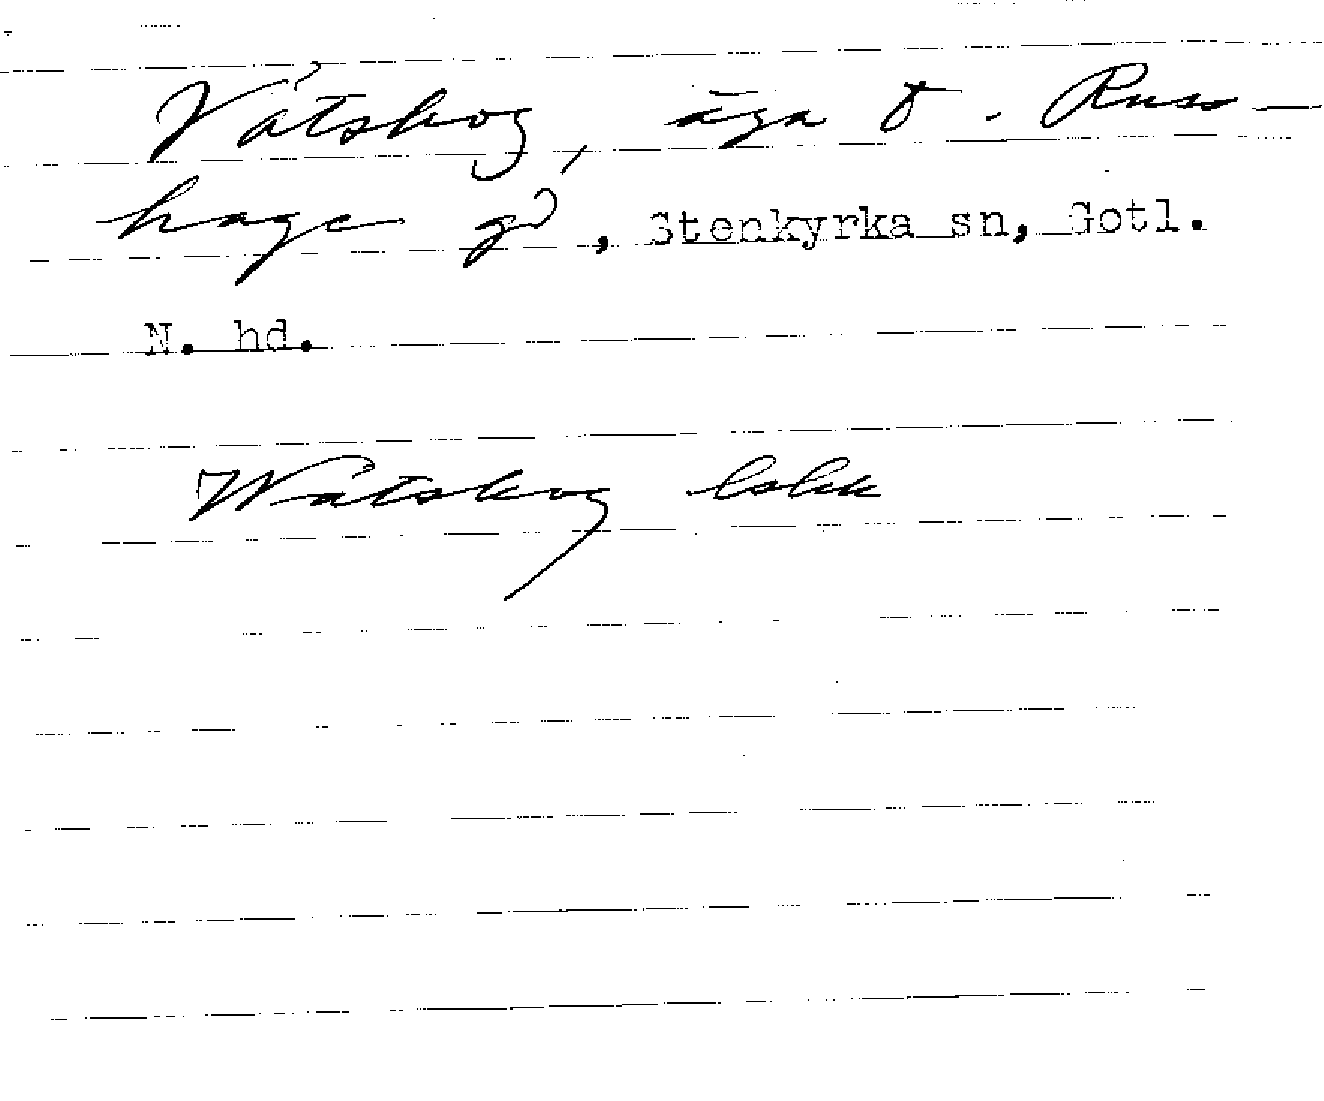 Våtskog, äga t. Russ-
hage gd, Stenkyrka sn, Gotl.
N. hd.
Wåtskog